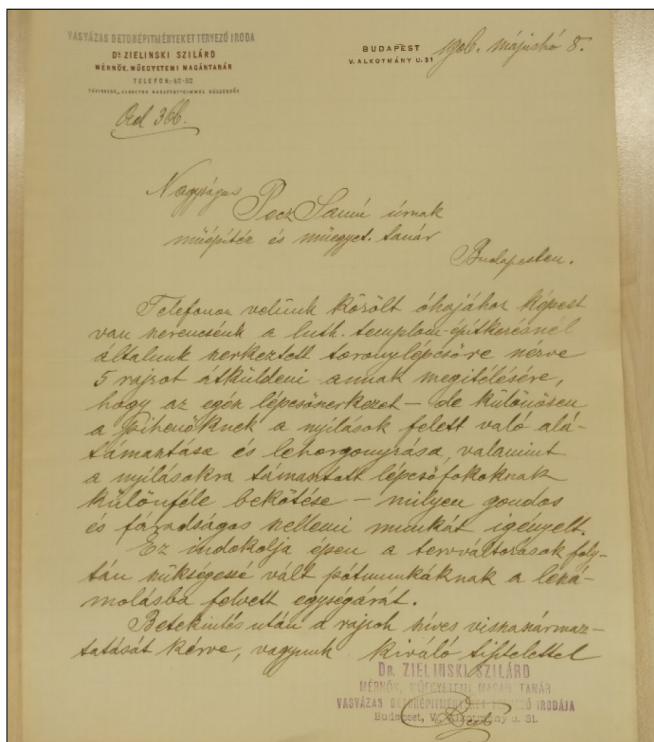 VASVÁZAS BETONÉPITMÉNYEKET TERVEZŐ IRODA
DR ZIELINSKI SZILÁRD
MÉRNÖK, MŰEGYETEMI MAGÁNTANÁR
TELEFON: 42-52
BUDAPEST
V. ALKOTMÁNY U. 31
1906. májushó 8.
Ord 366.
Nagyságos
Pecz Samu úrnak
műépítész és műegyet. tanár
Budapesten.
Telefonon velünk közölt óhajához képest
van szerencsénk a luth. templom-építkezésnél
általunk szerkeztett toronylépcsőre nézve
5 rajzot átküldeni annak megitélésére,
hogy az egész lépcsőszerkezet – de különösen
a pihenőknek a nyilások felett való alá-
támasztása és lehorgonyzása, valamint
a nyilásokra támasztott lépcsőfokoknak
különféle bekötése – milyen gondos
és fáradságos szellemi munkát igényelt.
Ez indokolja épen a tervváltozások foly-
tán szükségessé vált pótmunkáknak a leszá-
molásba felvett egységárát.
Betekintés után a rajzok szíves visszaszármaz-
tatását kérve, vagyunk kiváló tisztelettel
DR. ZIELINSKI SZILÁRD
MÉRNÖK, MŰEGYETEMI MAGÁN TANÁR
VASVÁZAS BETONÉPITMÉNYEKET TERVEZŐ IRODÁJA
Budapest, V. Alkotmány u. 31.